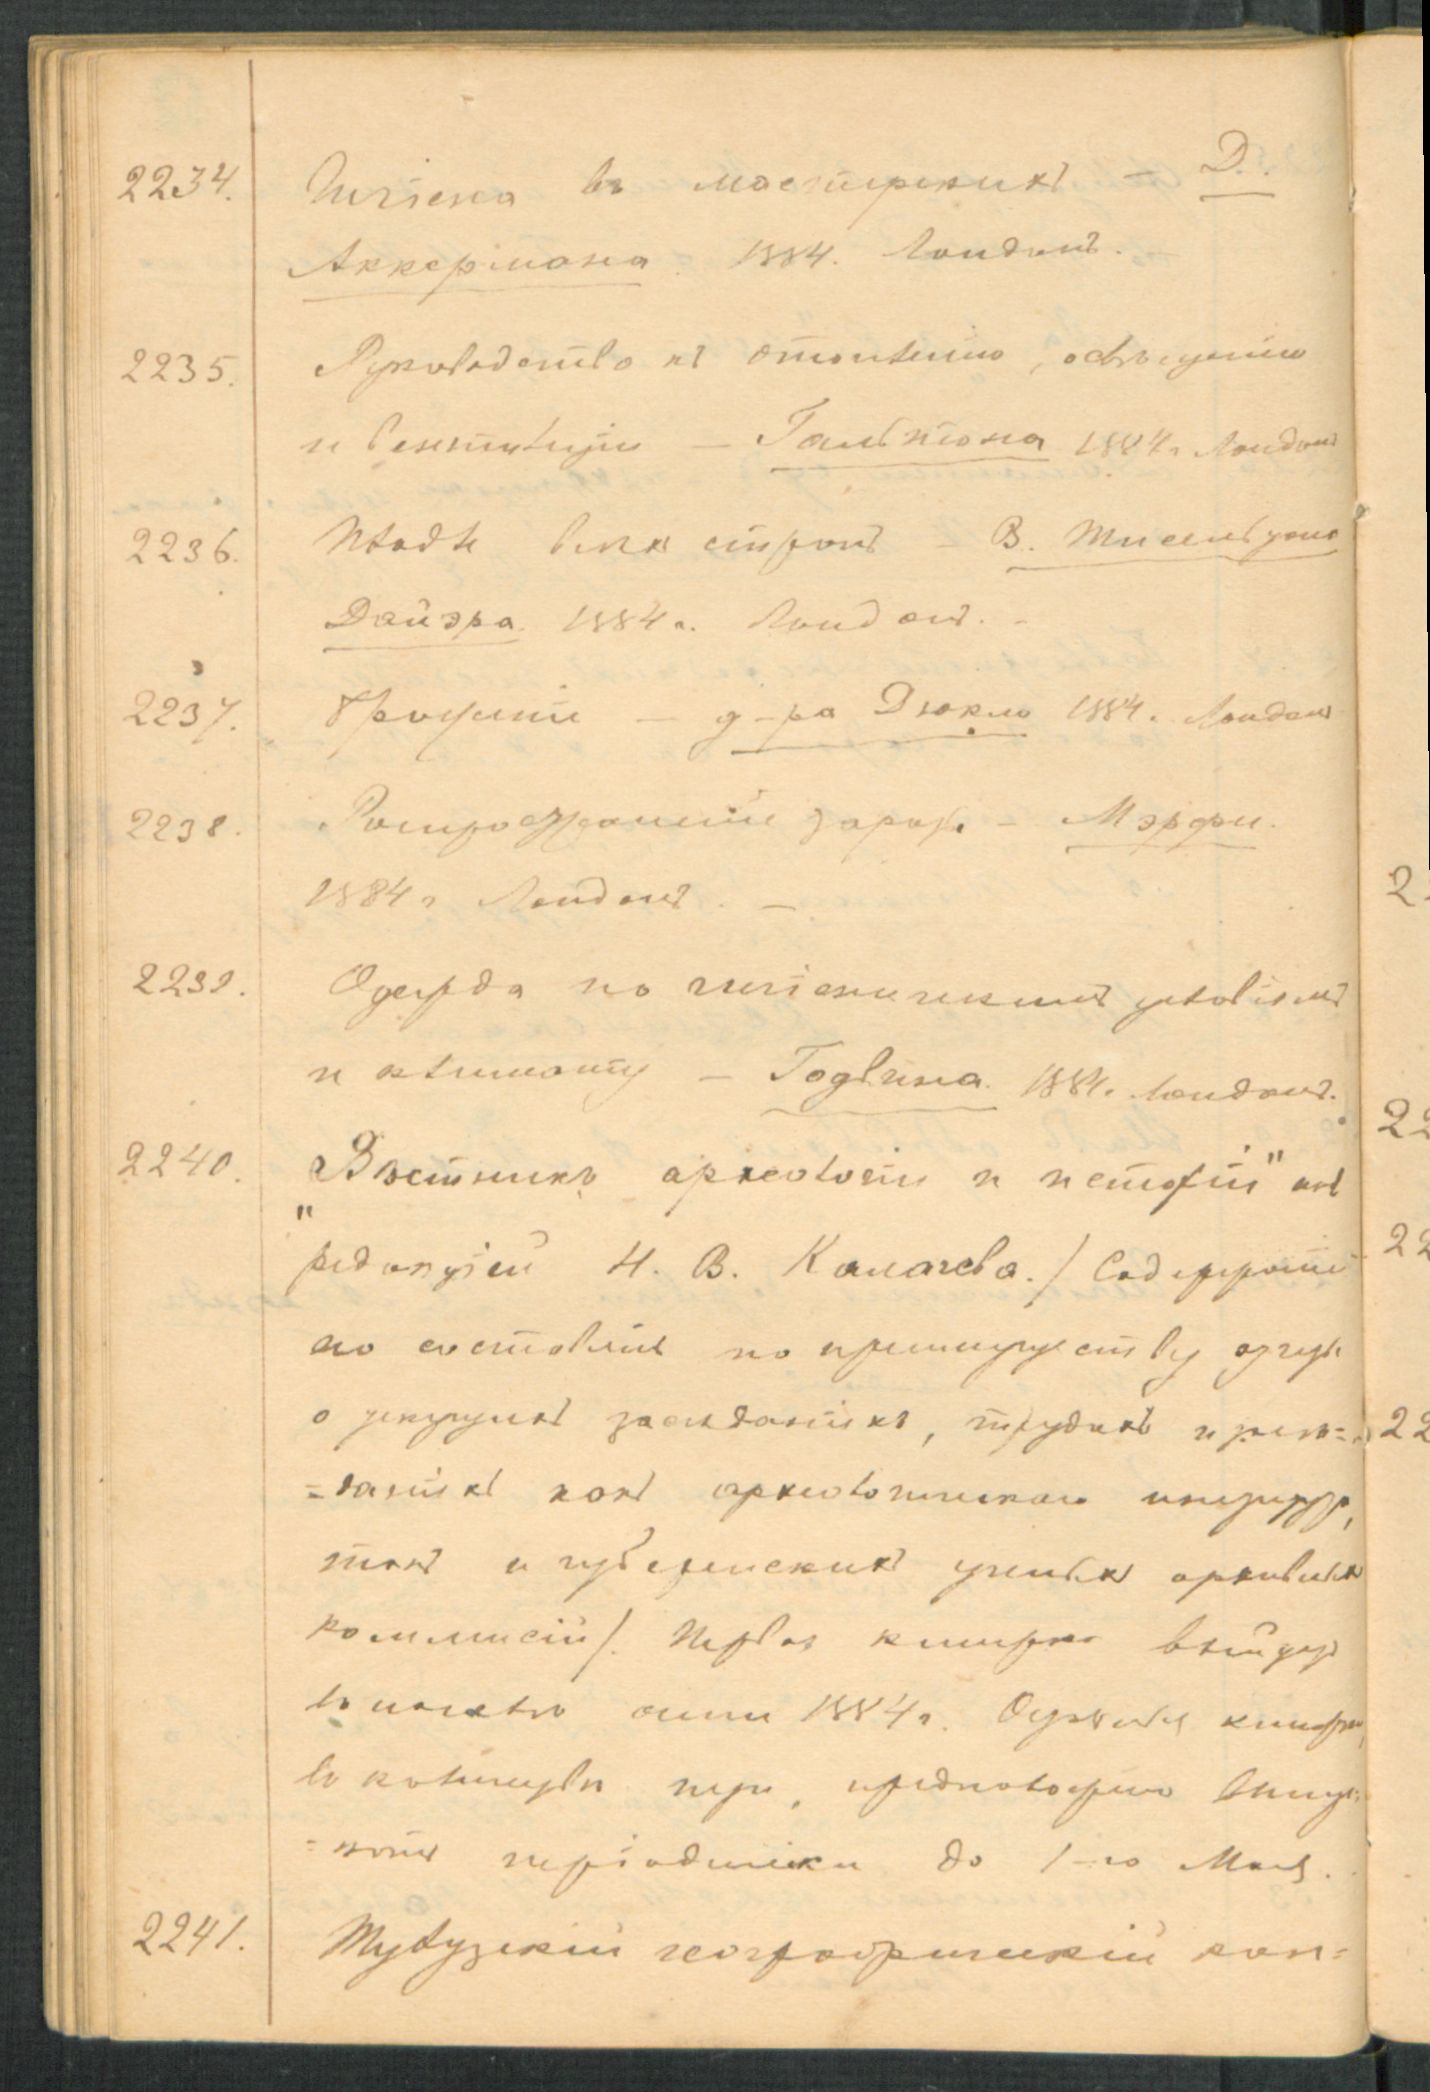 2234. Гигіена въ мастерскихъ – Д.
Аккермана. 1884. Лондонъ. –
2235. Руководство къ отопленію, освѣщенію
и вентиляціи – Гальтона 1884 г. Лондонъ
2236. Плоды всѣхъ странъ – В. Тисельтона
Дайэра. 1884 г. Лондонъ. –
2237. Броженіе – д-ра Дюкло 1884. Лондонъ
2238. Распространеніе заразы – Мэрфи.
1884 г Лондонъ. –
2239. Одежда по гигіеническимъ условіямъ
и климату – Годвина. 1884. Лондонъ.
2240. "Вѣстникъ археологіи и исторіи"
редакціей Н. В. Калачева. / Содержаніе
его составятъ по преимуществу
о засѣданіяхъ, трудахъ и
=даніяхъ какъ археологическаго
такъ и губернскихъ ученыхъ архивныхъ
коммисій/. Первая книжка выйдетъ
въ началѣ 1884 г. книжки
въ количествѣ предположено выпус=
до 1-го Мая.
2241. Тулузскій географическій кон=
2
22
22
22